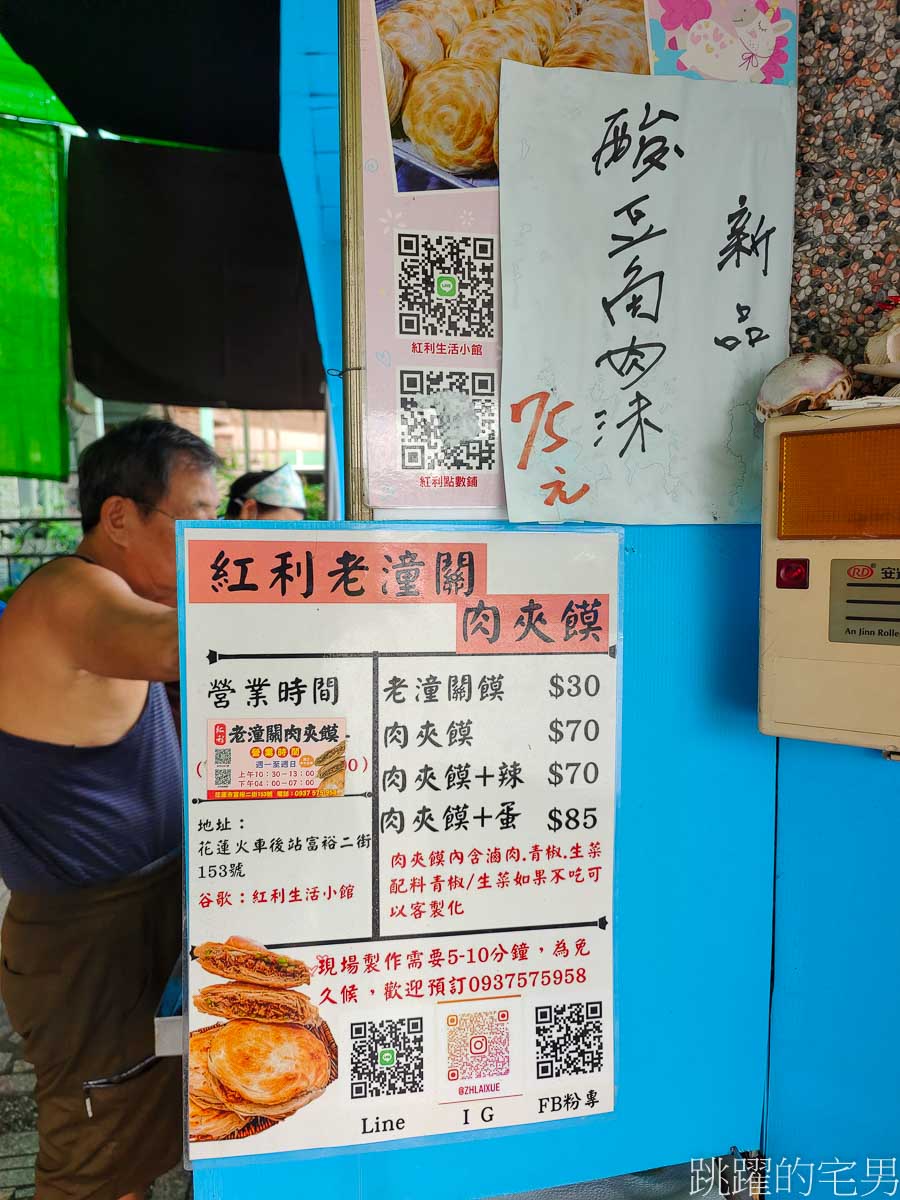 新品
酸豆角肉沫
75元
紅利生活小館
紅利點數鋪
紅利老潼關
肉夾饃
營業時間
紅利
老潼關肉夾饃
營業時間
週一至週日
上午10：30－13：00
下午04：00－07：00
花蓮市富裕二街153號 電話：0937 575958
地址：
花蓮火車後站富裕二街
153號
谷歌：紅利生活小館
老潼關饃 $30
肉夾饃 $70
肉夾饃+辣 $70
肉夾饃+蛋 $85
肉夾饃內含滷肉.青椒.生菜
配料青椒/生菜如果不吃可
以客製化
現場製作需要5-10分鐘，為免
久候，歡迎預訂0937575958
@ZHLAIXUE
Line
IG
FB粉專
RD
An Jinn Rolle
跳躍的宅男